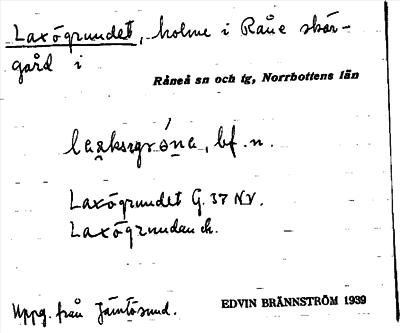 Laxögrundet, holme i Råne skär-
gård i
Råneå sn och tg, Norrbottens län
bf. n.
Laxögrundet G. 37 NV.
Laxögrundan ch.
Uppg. från Jämtösund.
EDVIN BRÄNNSTRÖM 1939